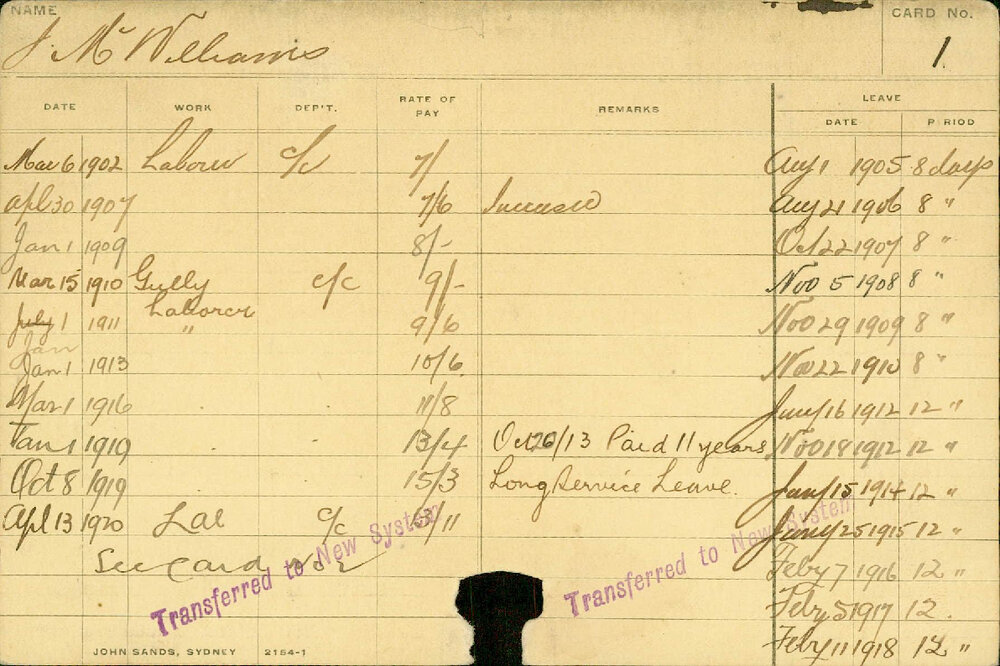 NAME CARD No.
J. McWilliams 1.
LEAVE
DATE WORK DEP'T. RATE OF PAY REMARKS DATE PERIOD
Mar 6 1902 Laborer c/c 7/ Aug 1 1905 8 days
Apl 30 1907 7/6 Increase Aug 21 1906 8 "
Jan 1 1909 8/- Oct 22 1907 8 "
Mar 15 1910 Gully c/c 9/- Nov 5 1908 8 "
Laborer
July 1 1911 " 9/6 Nov 29 1909 8 "
Jan
Jan 1 1913 10/6 Nov 22 1910 8 "
Mar 1 1916 11/8 Jany 16 1912 12 "
Jan 1 1919 13/4 Oct 26/13 Paid 11 years Nov 18 1912 12 "
Oct 8 1919 15/3 Long Service Leave. Jany 15 1914 12 "
Apl 13 1920 Lab c/c /11 Jany 25 1915 12 "
See Card No 2 Feby 7 1916 12 "
Transferred to New System Transferred to New System
Feby 5 1917 12.
Feby 11 1918 12 "
JOHN SANDS, SYDNEY 2154-1